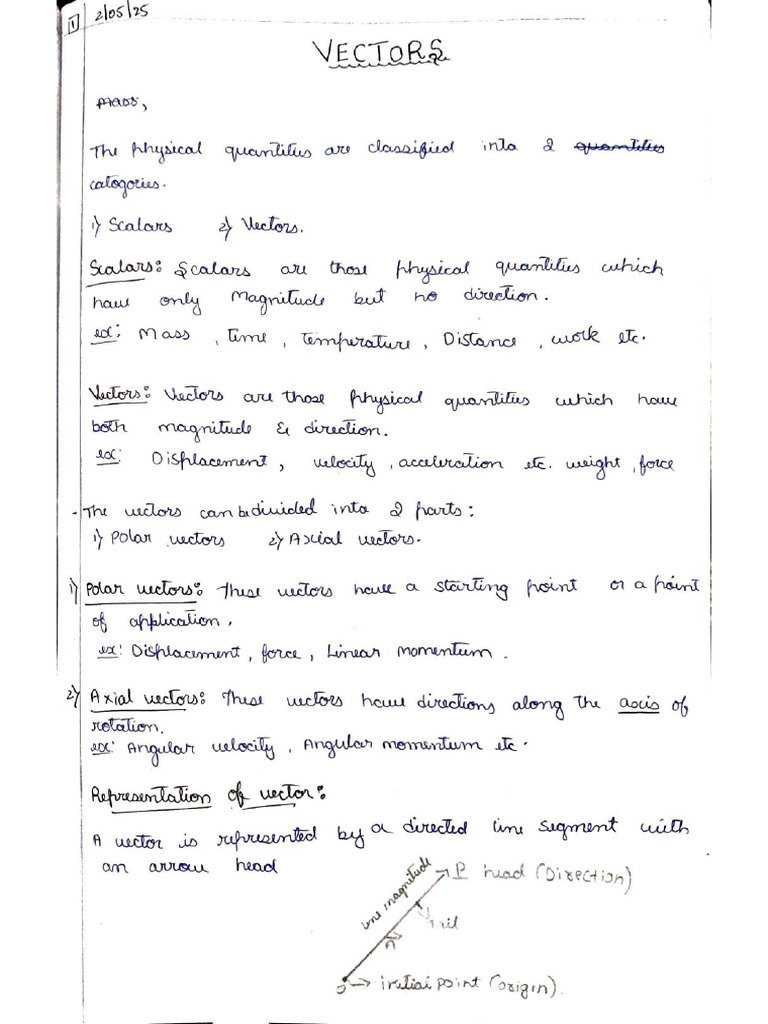 1 2/05/25
VECTORS
mass,
The physical quantities are classified into 2 quantities
catogories.
1) Scalars 2) Vectors.
Scalars: Scalars are those physical quantities which
have only Magnitude but no direction.
ex: Mass, time, temperature, Distance, work etc.
Vectors: Vectors are those physical quantities which have
both magnitude & direction.
ex: Displacement, velocity, acceleration etc. weight, force
- The vectors can be divided into 2 parts:
1) Polar vectors 2) Axial vectors.
1) Polar vectors: These vectors have a starting point or a point
of application.
ex: Displacement, force, Linear momentum.
2) Axial vectors: These vectors have directions along the axis of
rotation.
ex: Angular velocity, Angular momentum etc.
Representation of vector:
A vector is represented by a directed line segment with
an arrow head
P head (Direction)
line magnitude
tail
O → initial point (origin).